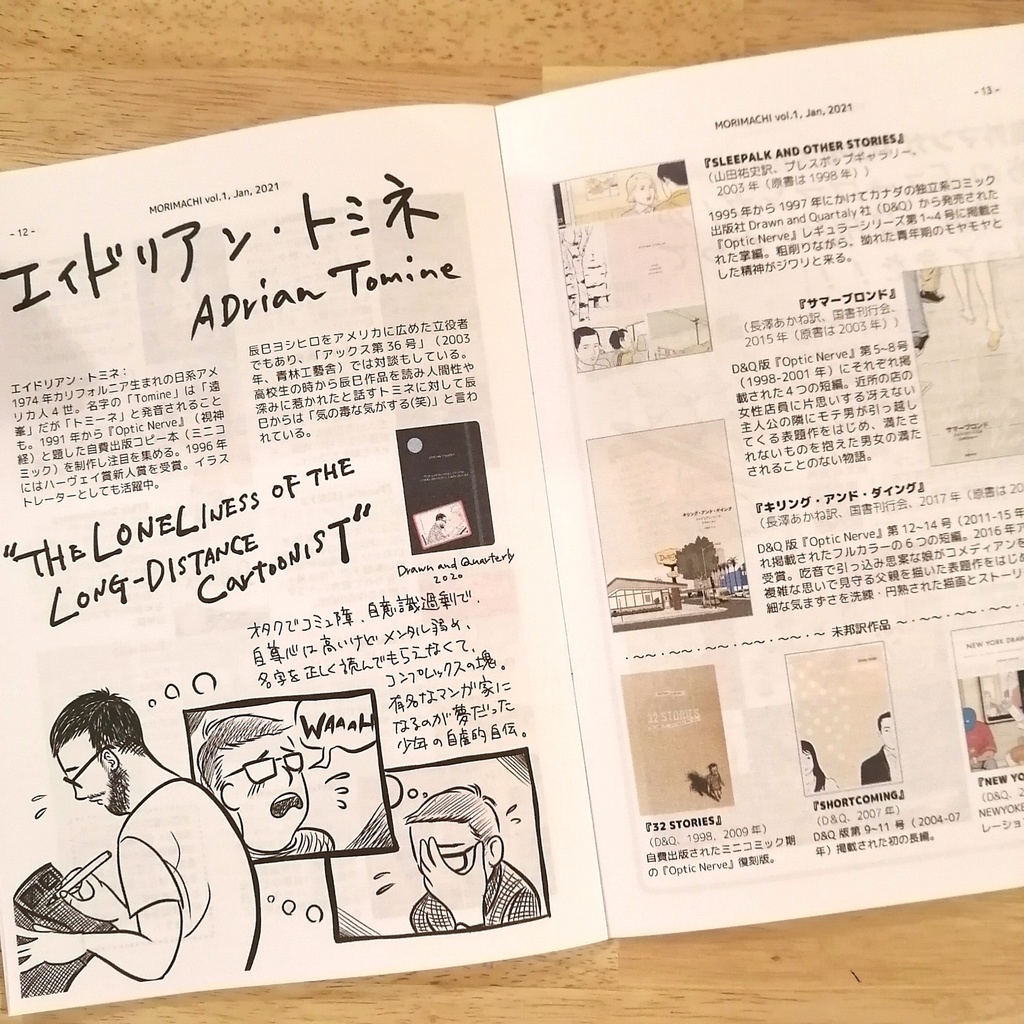 - 12 -
MORIMACHI vol.1, Jan, 2021
エイドリアン・トミネ
ADrian Tomine
エイドリアン・トミネ：
1974 年カリフォルニア生まれの日系アメ
リカ人 4 世。名字の「Tomine」は「遠
峯」だが「トミーネ」と発音されること
も。1991 年から『Optic Nerve』（視神
経）と題した自費出版コピー本（ミニコ
ミック）を制作し注目を集める。1996 年
にはハーヴェイ賞新人賞を受賞。イラス
トレーターとしても活躍中。
辰巳ヨシヒロをアメリカに広めた立役者
でもあり、「アックス第 36 号」（2003
年、青林工藝舎）では対談もしている。
高校生の時から辰巳作品を読み人間性や
深みに惹かれたと話すトミネに対して辰
巳からは「気の毒な気がする(笑)」と言わ
れている。
"THE LONELINESS OF THE
LONG-DISTANCE
CARTOONIST"
Drawn and Quarterly
2020
オタクでコミュ障、自意識過剰で、
自尊心は高いけどメンタル弱め、
名字を正しく読んでもらえなくて、
コンプレックスの塊。
有名なマンガ家に
なるのが夢だった
少年の自虐的自伝。
WAAAH
- 13 -
MORIMACHI vol.1, Jan, 2021
『SLEEPALK AND OTHER STORIES』
（山田祐史訳、プレスポップギャラリー、
2003 年（原書は 1998 年））
1995 年から 1997 年にかけてカナダの独立系コミック
出版社 Drawn and Quartaly 社（D&Q）から発売された
『Optic Nerve』レギュラーシリーズ第 1~4 号に掲載さ
れた掌編。粗削りながら、拗れた青年期のモヤモヤと
した精神がジワリと来る。
『サマーブロンド』
（長澤あかね訳、国書刊行会、
2015 年（原書は 2003 年））
D&Q版『Optic Nerve』第 5~8号
(1998-2001 年) にそれぞれ掲
載された 4 つの短編。近所の店の
女性店員に片思いする冴えない
主人公の隣にモテ男が引っ越し
てくる表題作をはじめ、満たさ
れないものを抱えた男女の満た
されることのない物語。
サマーブロンド
キリング・アンド・ダイング
『キリング・アンド・ダイング』
（長澤あかね訳、国書刊行会、2017 年（原書は 20
D&Q 版『Optic Nerve』第 12~14 号（2011-15 年
れ掲載されたフルカラーの 6 つの短編。2016 年ア
受賞。吃音で引っ込み思案な娘がコメディアンを
複雑な思いで見守る父親を描いた表題作をはじめ
細な気まずさを洗練・円熟された描画とストーリ
未邦訳作品
32 STORIES
NEW YORK DRAW
『32 STORIES』
（D&Q、1998、2009 年）
自費出版されたミニコミック期
の『Optic Nerve』復刻版。
『SHORTCOMING』
（D&Q、2007 年）
D&Q 版第 9~11 号（2004-07
年）掲載された初の長編。
『NEW YO
（D&Q、2
NEWYOKE
レーショ